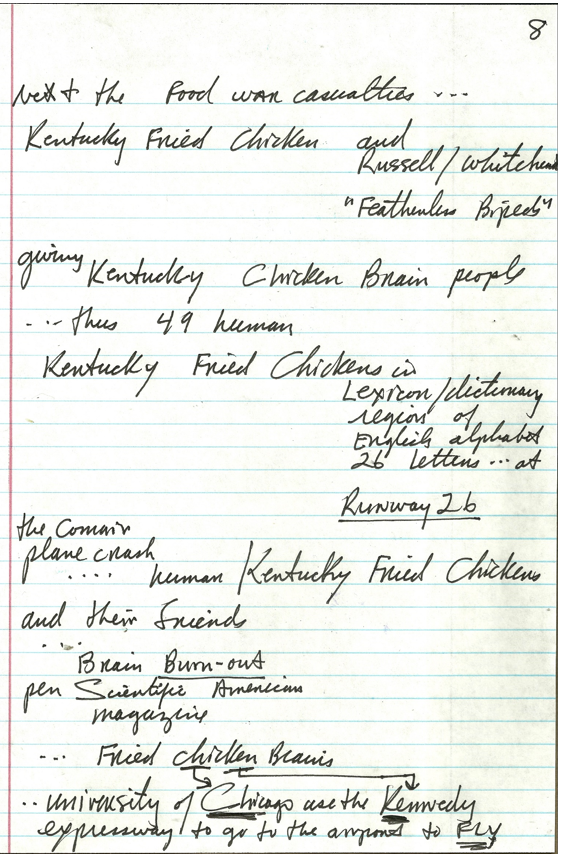 8
next the Food war casualties ...
Kentucky Fried Chicken and
Russell/Whitehead
"Featherless Bipeds"
giving Kentucky Chicken Brain people
... thus 49 human
Kentucky Fried Chickens in
Lexicon/dictionary
region of
English alphabet
26 letters ... at
Runway 26
the Comair
plane crash
.... human/Kentucky Fried Chickens
and their friends
....
Brain Burn-out
per Scientific American
magazine
... Fried chicken Brains
.. university of Chicago use the Kennedy
expressway to go to the airport to FLY